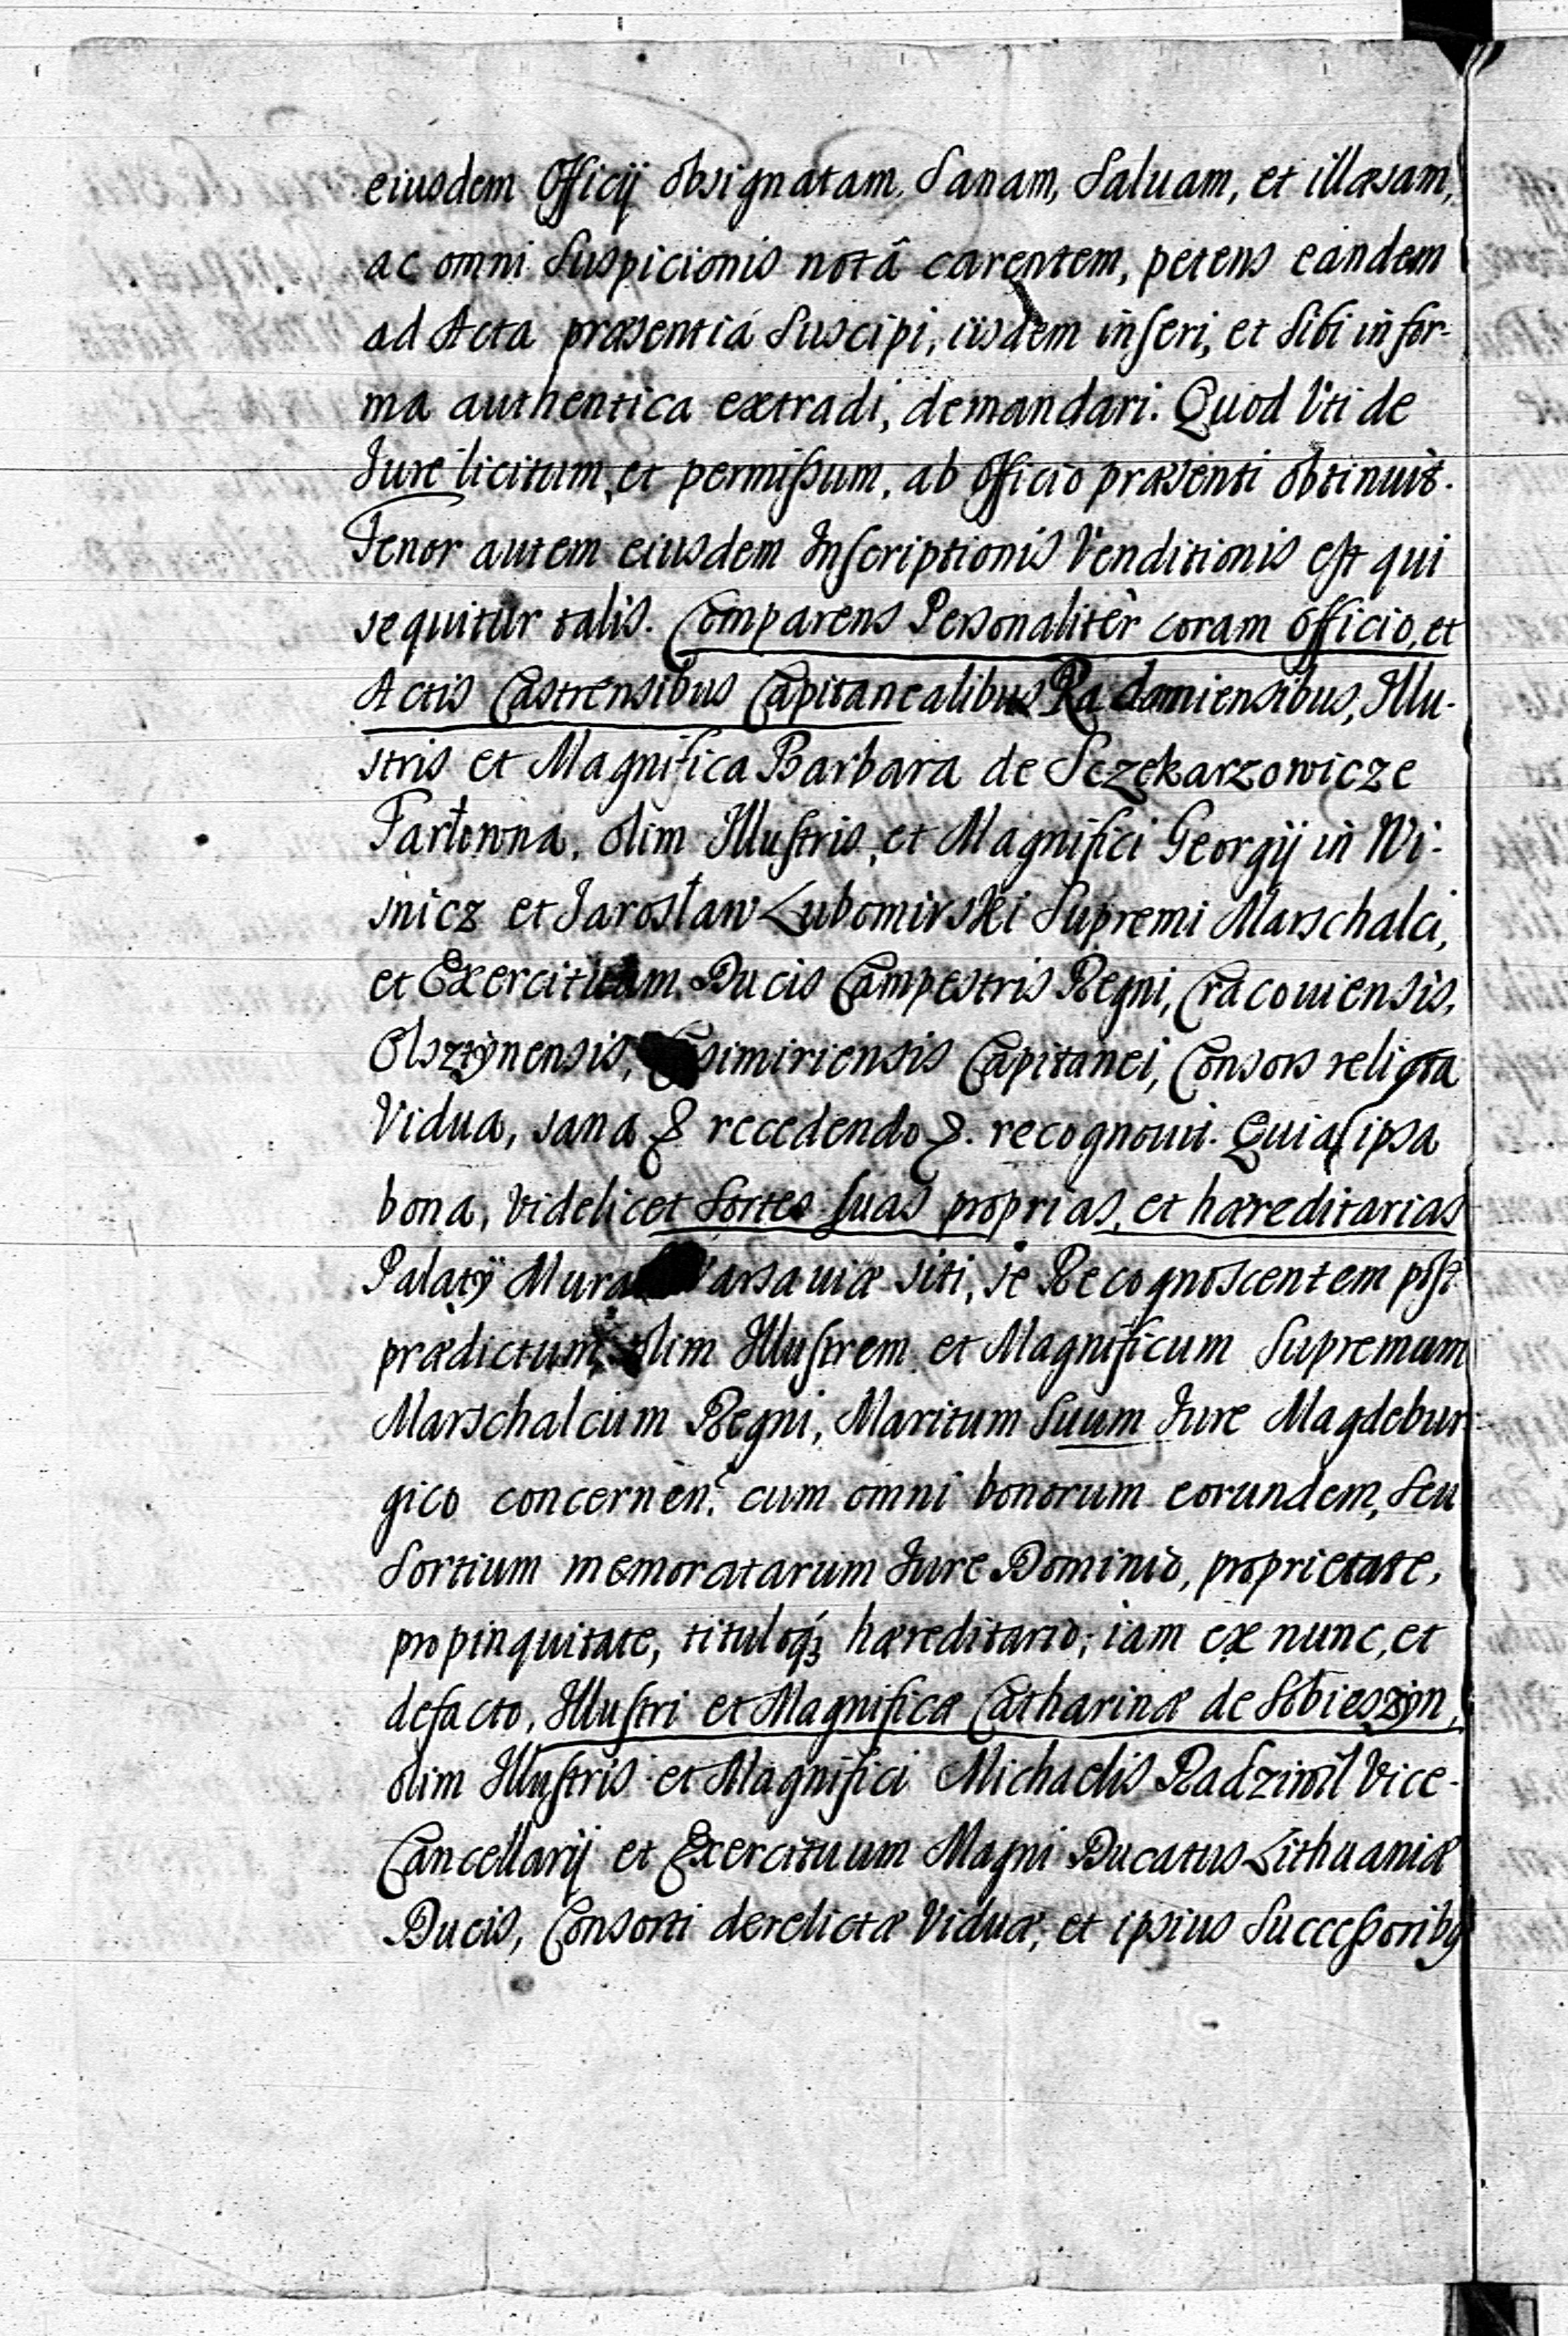 eiusdem Officij obsignatam, Sanam, Saluam, et illæsam,
ac omni Suspicionis notâ carentem, petens eandem
ad Acta præsentiá Suscipi, iisdem inseri, et Sibi in for-
ma authentica extradi, demandari. Quod Vti de
Iure licitum, et permißum, ab Officio præsenti obtinuit.
Tenor autem eiusdem Inscriptionis Venditionis est qui
sequitur talis. Comparens Personalitèr coram Officio, et
Actis Castrensibus Capitanealibus Radomiensibus, Illu-
stris et Magnifica Barbara de Sczekarzowicze
Tarłowna, olim Illustris, et Magnifici Georgij in Wi-
snicz et Jarosław Lubomirski Supremi Marschalci,
et Exercituum Ducis Campestris Regni, Cracouiensis,
Olsztynensis, simiriensis Capitanei, Consors relicta
Vidua, sana & recedendo &. recognouit. Quia ipsa
bona, videlicet Sortes suas proprias, et hæreditarias
Palatÿ arsauiæ siti, se Recognoscentem post
prædictum olim Illustrem et Magnificum Supremum
Marschalcum Regni, Maritum Suum Iure Magdebur-
gico concernèn: cum omni bonorum eorundem, Seu
Sortium memoratarum Iure Dominio, proprietate,
propinquitate, tituloq́; hæreditario; iam ex nunc, et
defacto, Illustri et Magnificæ Catharinæ de Sobieszyn,
olim Illustris et Magnifici Michaelis Radziwił Vice-
Cancellarij et Exercituum Magni Ducatus Lithuaniæ
Ducis, Consorti derelictæ Viduæ, et ipsius Succeßoribꝫ